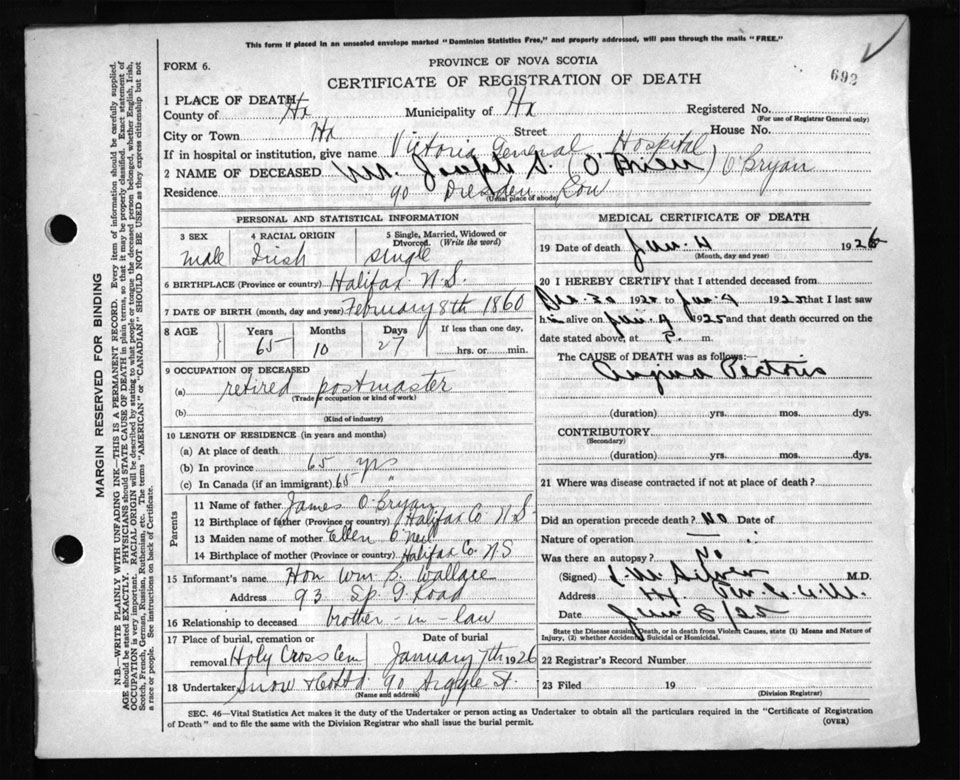 This form if placed in an unsealed envelope marked "Dominion Statistics Free," and properly addressed, will pass through the mails "FREE."
692
FORM 6.
PROVINCE OF NOVA SCOTIA
CERTIFICATE OF REGISTRATION OF DEATH
1 PLACE OF DEATH
County of Hx Municipality of Hx Registered No.
(For use of Registrar General only)
City or Town Hx Street House No.
If in hospital or institution, give name Victoria General Hospital
2 NAME OF DECEASED Mr. Joseph S. (O'Brien) O'Bryan
Residence 90 Dresden Row
(Usual place of abode)
PERSONAL AND STATISTICAL INFORMATION
3 SEX 4 RACIAL ORIGIN 5 Single, Married, Widowed or Divorced. (Write the word)
male Irish single
6 BIRTHPLACE (Province or country) Halifax N.S.
7 DATE OF BIRTH (month, day and year) February 8th 1860
8 AGE Years Months Days If less than one day,
65 10 27 hrs. or min.
9 OCCUPATION OF DECEASED
(a) retired postmaster
(Trade or occupation or kind of work)
(b)
(Kind of industry)
10 LENGTH OF RESIDENCE (in years and months)
(a) At place of death
(b) In province 65 yrs
(c) In Canada (if an immigrant) 65 "
Parents
11 Name of father James O'Bryan
12 Birthplace of father (Province or country) Halifax Co. N.S.
13 Maiden name of mother Ellen O'Neil
14 Birthplace of mother (Province or country) Halifax Co. N.S
15 Informant's name Hon Wm B. Wallace
Address 93 Sp. G. Road
16 Relationship to deceased brother-in-law
17 Place of burial, cremation or removal Date of burial
Holy Cross Cem January 7th 1926
18 Undertaker Snow & Co Ltd 90 Argyle St.
(Name and address)
MEDICAL CERTIFICATE OF DEATH
19 Date of death Jan. 4 1926
(Month, day and year)
20 I HEREBY CERTIFY that I attended deceased from
Dec. 30 192 to Jan. 4 1925 that I last saw
him alive on Jan. 4 1925 and that death occurred on the
date stated above, at P. m.
The CAUSE of DEATH was as follows:
Angina Pectoris
(duration) yrs. mos. dys.
CONTRIBUTORY
(Secondary)
(duration) yrs. mos. dys.
21 Where was disease contracted if not at place of death?
Did an operation precede death? No Date of
Nature of operation
Was there an autopsy? No
(Signed) M.D.
Address
Date Jan. 8/25
State the Disease causing Death, or in death from Violent Causes, state (1) Means and Nature of
Injury, (2) whether Accidental, Suicidal or Homicidal.
22 Registrar's Record Number
23 Filed 19
(Division Registrar)
SEC. 46—Vital Statistics Act makes it the duty of the Undertaker or person acting as Undertaker to obtain all the particulars required in the "Certificate of Registration
of Death" and to file the same with the Division Registrar who shall issue the burial permit.
(OVER)
MARGIN RESERVED FOR BINDING
N.B.—WRITE PLAINLY WITH UNFADING INK—THIS IS A PERMANENT RECORD. Every item of information should be carefully supplied.
AGE should be stated EXACTLY. PHYSICIANS should STATE CAUSE OF DEATH in plain terms, so that it may be properly classified. Exact statement of
OCCUPATION is very important. RACIAL ORIGIN will be described by stating to what people or tongue the deceased person belonged, whether English, Irish,
Scotch, French, German, Russian, Ruthenian, etc. The terms "AMERICAN" or "CANADIAN" SHOULD NOT BE USED as they express citizenship but not
a race or people. See instructions on back of Certificate.